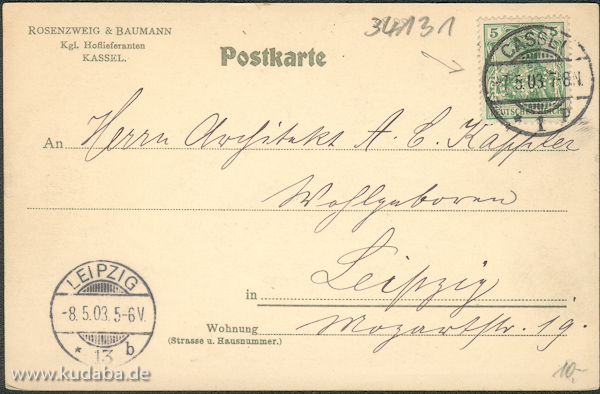 ROSENZWEIG & BAUMANN
Kgl. Hoflieferanten
KASSEL.
34131
Postkarte
5
CASSEL
-7.5.03.7-8.N.
* 1 r
An Herrn Architekt A. C. Kappler
Wohlgeboren
in Leipzig
Wohnung Mozartstr. 19.
(Strasse u. Hausnummer.)
LEIPZIG
-8.5.03.5-6V.
* 13 b
10.-
www.kudaba.de